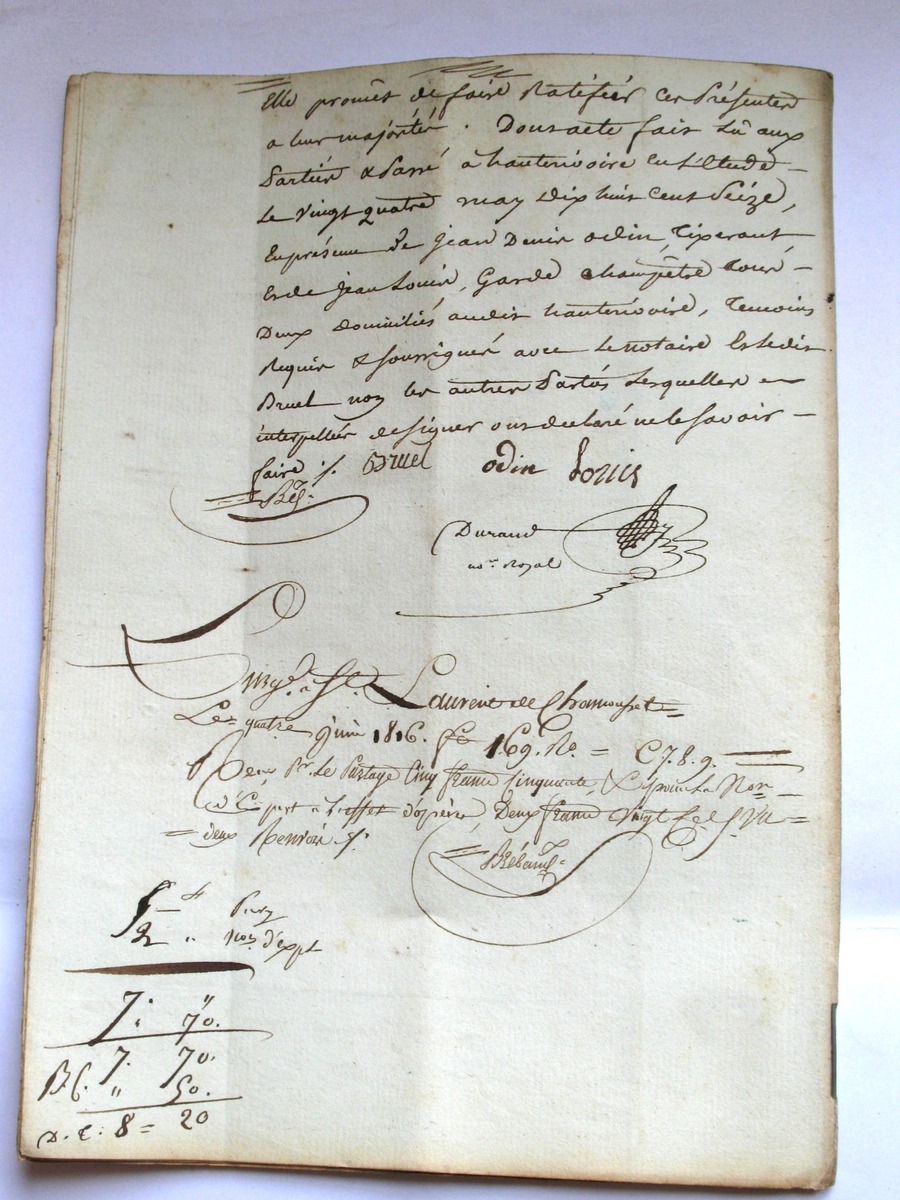 Elle promêt de faire Ratifiér ces Présentes
a leur majorité. Dont acte fait Lû aux
Partiés & Passé à hauterivoire En L'Etude
Le Vingt quatre may dix huit Cent Seize,
En présence de Jean Denis odin, Tiserant
Et de Jean Louis, Garde Champêtre
Deux domiciliés audit hauterivoire, Temoins
Requis & soussignés avec Le notaire Et Ledit
Bruel non les autres Partiés Lesquelles
interpellées de signer ont declaré ne le savoir
faire ./. Bruel odin Louis
Durand
no.re Royal
à St. Laurent de Chamousset
Le quatre juin 1816. fo 169. Ro. C 7. 8. 9.
Reçu Pr. Le Partage Cinq francs Cinquante, La Non
d'Expert Deux francs Vingt
deux Renvois ./.
2 " Non d'expt
7. 70.
B.C. 7. 70.
" 50.
D. E. 8 = 20